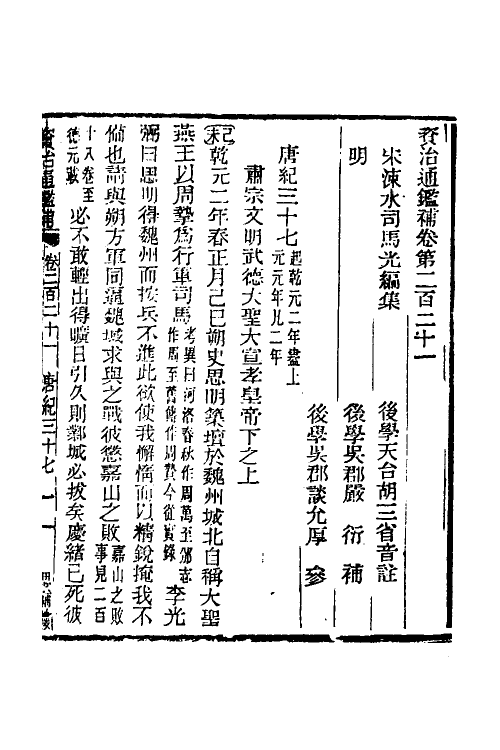 資治通鑑補卷第二百二十一
宋涑水司馬光編集
後學天台胡三省音註
明
後學吳郡嚴衍補
後學吳郡談允厚參
唐紀三十七起乾元二年盡上元元年凡二年
肅宗文明武德大聖大宣孝皇帝下之上
己亥乾元二年春正月己巳朔史思明築壇於魏州城北自稱大聖
燕王以周摯爲行軍司馬考異曰河洛春秋作周萬至邠志作周至舊傳作周贄今從實錄李光
弼曰思明得魏州而按兵不進此欲使我懈惰而以精銳掩我不
備也請與朔方軍同逼魏城求與之戰彼懲嘉山之敗嘉山之敗事見二百
十八卷至德元載必不敢輕出得曠日引久則鄴城必拔矣慶緒已死彼
資治通鑑補 卷二百二十一 唐紀三十七 一 思補樓